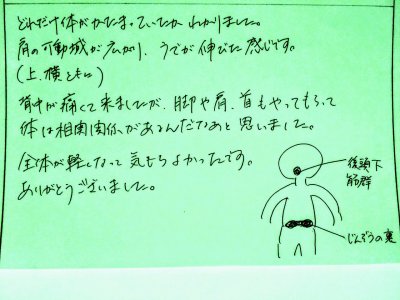 どれだけ体がかたまっていたかわかりました。
肩の可動域が広がり、うでが伸びた感じです。
(上、横ともに)
背中が痛くて来ましたが、脚や肩、首もやってもらって
体は相関関係があるんだなあと思いました。
全体が軽くなって気もちよかったです。
ありがとうございました。
後頭下
筋群
じんぞうの裏